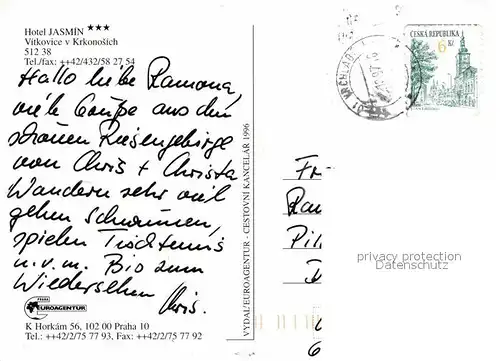 Hotel JASMÍN ★★★
Vítkovice v Krkonoších
512 38
Tel./fax: ++42/432/58 27 54
Hallo liebe Ramona,
viele Grüße aus dem
schönen Riesengebirge
von Chris + Christa
Wandern sehr viel
gehen schwimmen,
spielen Tischtennis
u.v.m. Bis zum
Wiedersehen Chris.
PRAHA
EUROAGENTUR
K Horkám 56, 102 00 Praha 10
Tel.: ++42/2/75 77 93, Fax: ++42/2/75 77 92
VYDAL: EUROAGENTUR - CESTOVNÍ KANCELÁŘ 1996
VRCHLABÍ 1
ČESKÁ REPUBLIKA
6 Kč
Fr
Ram
Pil
privacy protection
Datenschutz
6